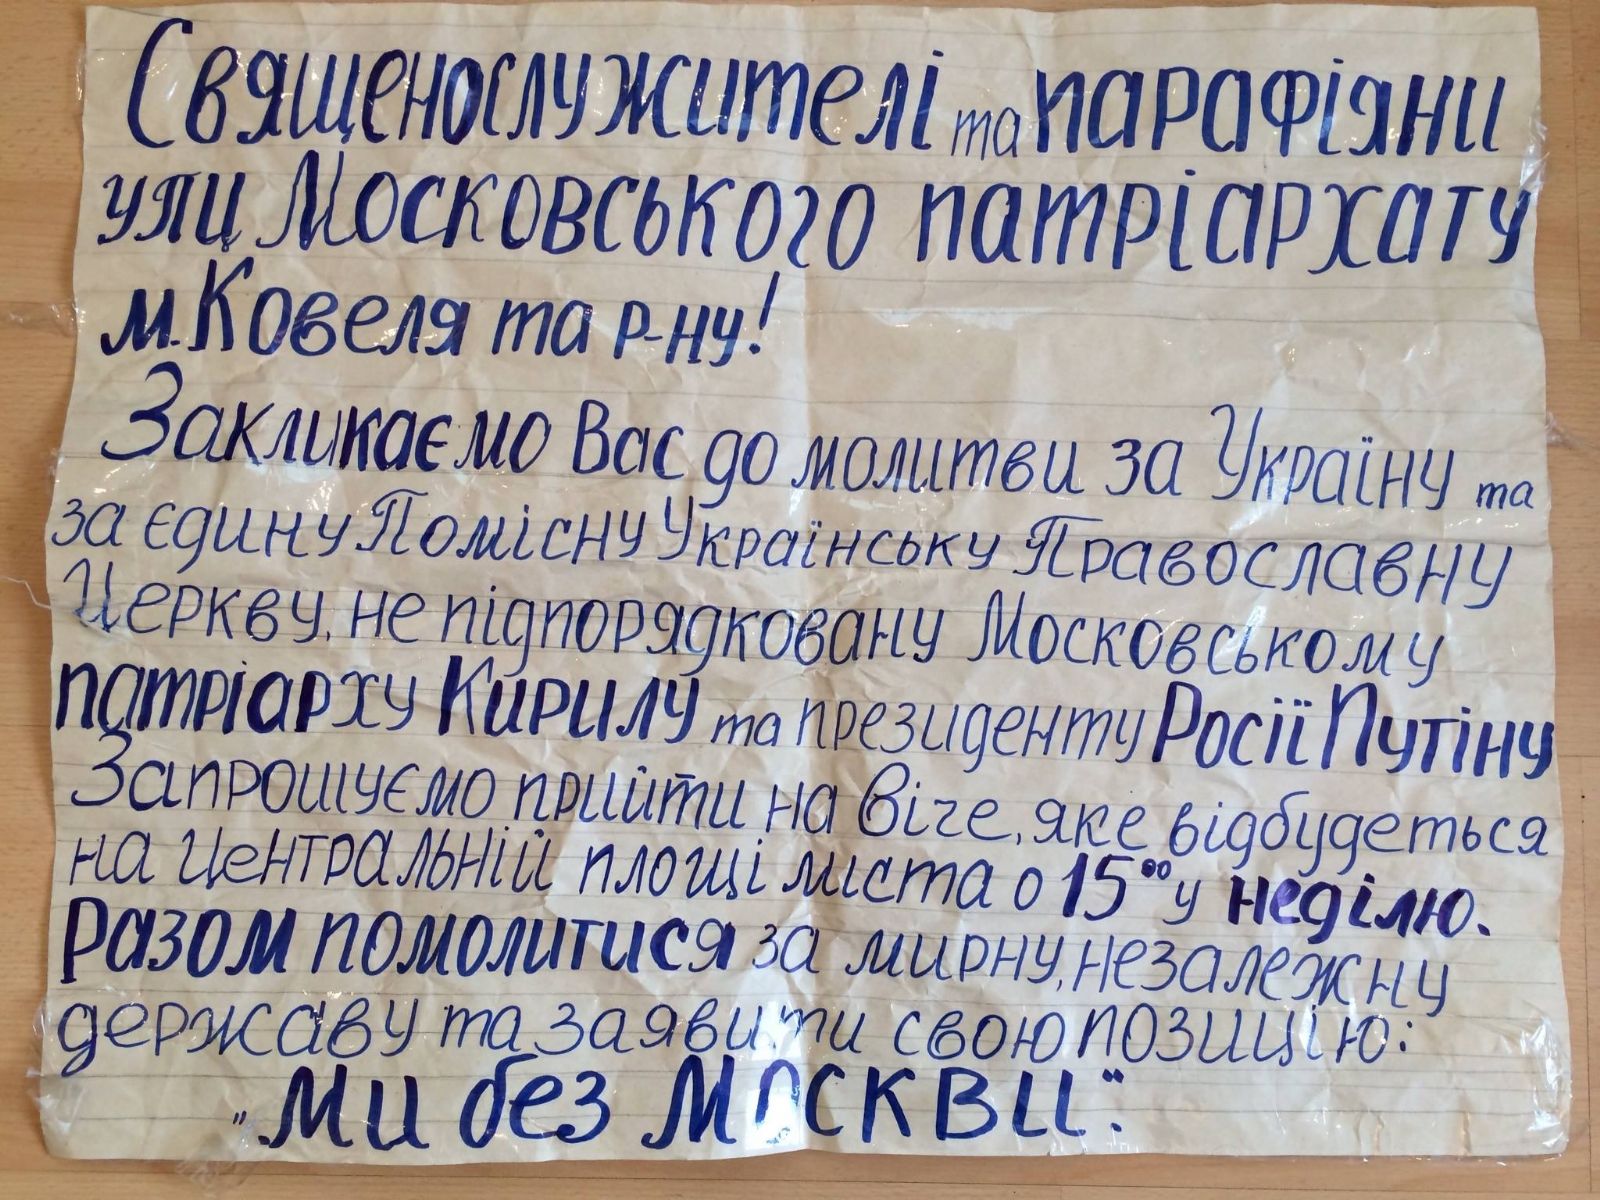 Священослужителі та парафіяни
УПЦ Московського патріархату
м. Ковеля та р-ну!
Закликаємо Вас до молитви за Україну та
за єдину Помісну Українську Православну
Церкву, не підпорядковану Московському
патріарху Кирилу та президенту Росії Путіну
Запрошуємо прийти на Віче, яке відбудеться
на Центральній площі міста о 15⁰⁰ у неділю.
Разом помолитися за мирну, незалежну
державу та заявити свою позицію:
„Ми без Москви".